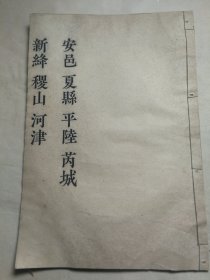 安邑 夏縣 平陸 芮城
新絳 稷山 河津